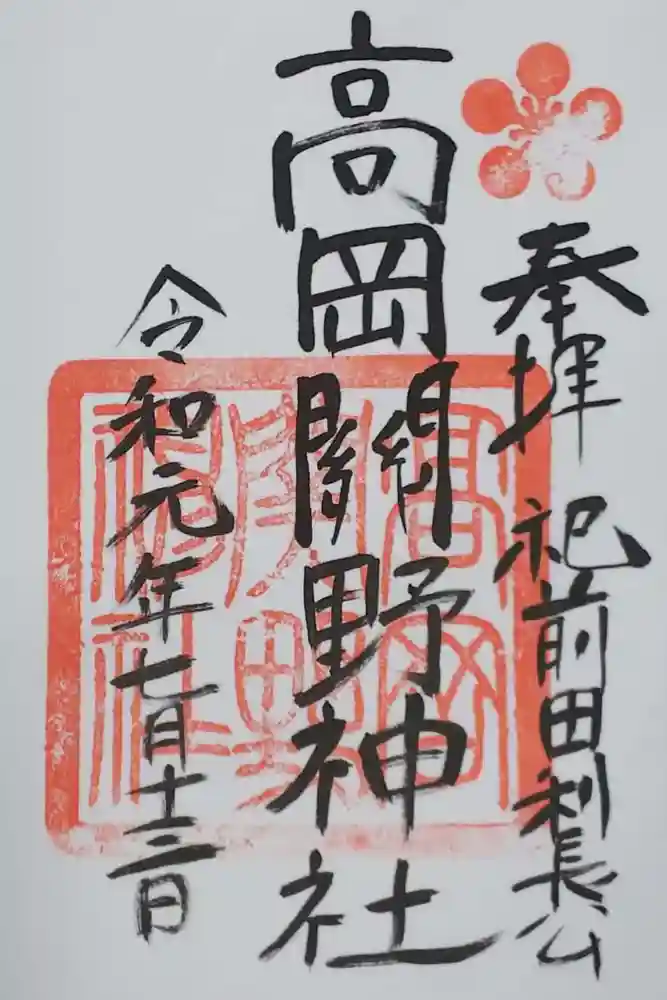 奉拝 祀前田利長公
高岡關野神社
令和元年七月十三日
高岡
關野
神社